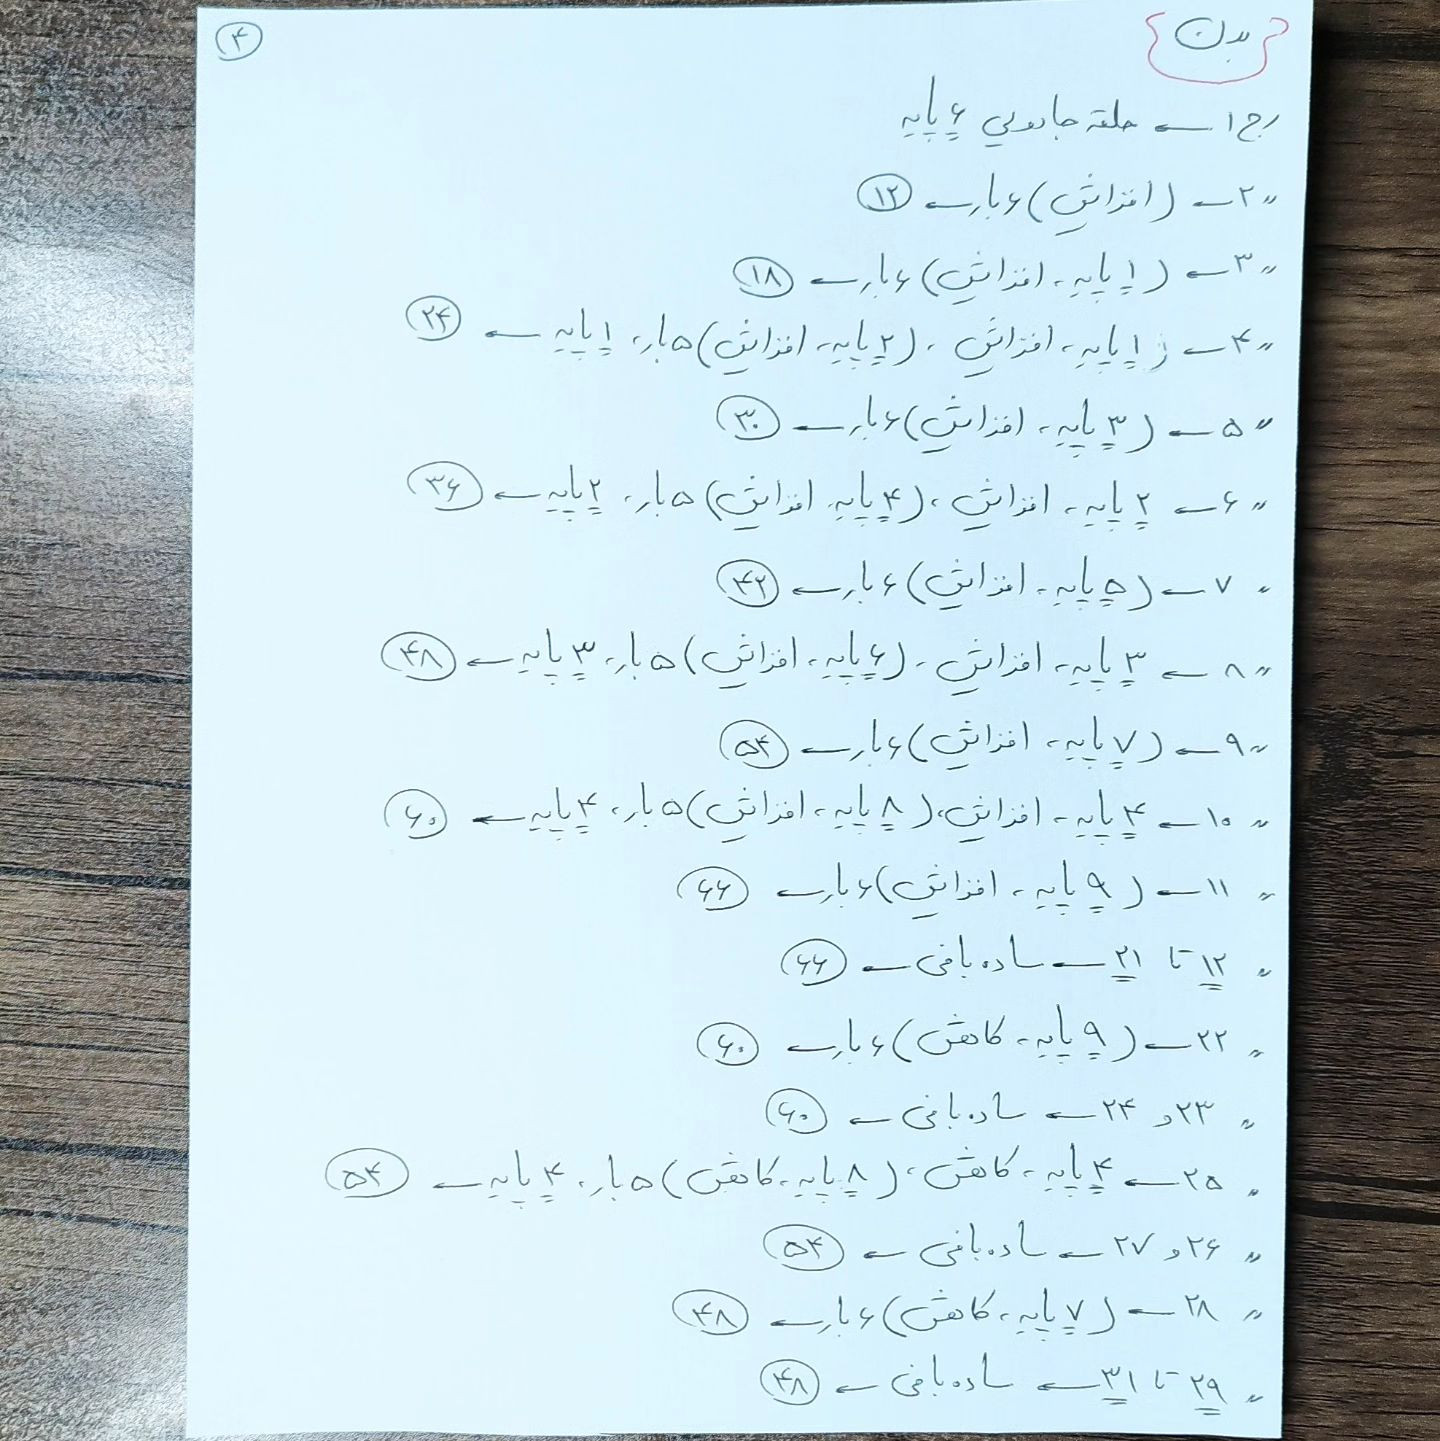 ۴
بدن
رج ۱ ← حلقه جادویی ۶ پایه
〃 ۲ ← (افزایش) ۶ بار ← ۱۲
〃 ۳ ← (۱ پایه، افزایش) ۶ بار ← ۱۸
〃 ۴ ← ۱ پایه، افزایش، (۲ پایه، افزایش) ۵ بار، ۱ پایه ← ۲۴
〃 ۵ ← (۳ پایه، افزایش) ۶ بار ← ۳۰
〃 ۶ ← ۲ پایه، افزایش، (۴ پایه، افزایش) ۵ بار، ۲ پایه ← ۳۶
〃 ۷ ← (۵ پایه، افزایش) ۶ بار ← ۴۲
〃 ۸ ← ۳ پایه، افزایش، (۶ پایه، افزایش) ۵ بار، ۳ پایه ← ۴۸
〃 ۹ ← (۷ پایه، افزایش) ۶ بار ← ۵۴
〃 ۱۰ ← ۴ پایه، افزایش، (۸ پایه، افزایش) ۵ بار، ۴ پایه ← ۶۰
〃 ۱۱ ← (۹ پایه، افزایش) ۶ بار ← ۶۶
〃 ۱۲ تا ۲۱ ← ساده بافی ← ۶۶
〃 ۲۲ ← (۹ پایه، کاهش) ۶ بار ← ۶۰
〃 ۲۳ و ۲۴ ← ساده بافی ← ۶۰
〃 ۲۵ ← ۴ پایه، کاهش، (۸ پایه، کاهش) ۵ بار، ۴ پایه ← ۵۴
〃 ۲۶ و ۲۷ ← ساده بافی ← ۵۴
〃 ۲۸ ← (۷ پایه، کاهش) ۶ بار ← ۴۸
〃 ۲۹ تا ۳۱ ← ساده بافی ← ۴۸